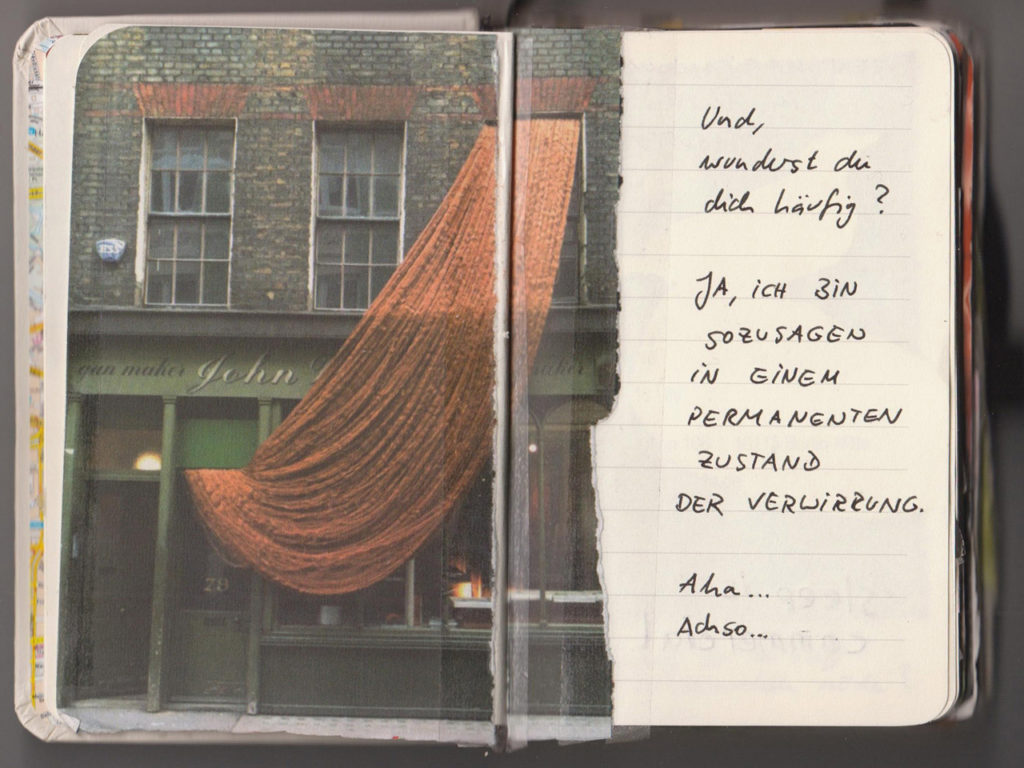 gan maker John
maker
78
Und,
wunderst du
dich häufig?
JA, ICH BIN
SOZUSAGEN
IN EINEM
PERMANENTEN
ZUSTAND
DER VERWIRRUNG.
Aha...
Achso...